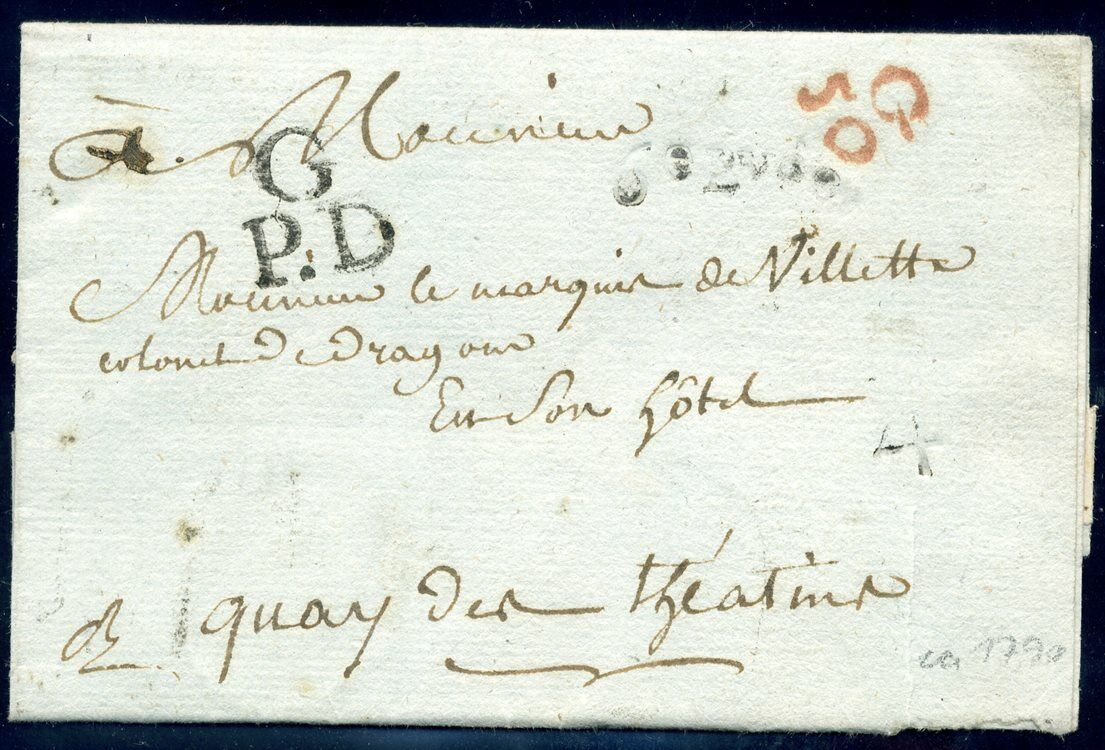 À Monsieur
G
50
G
P.D
Monsieur le marquis de Villette
colonel de dragons
En son hôtel
4
quay des théatins
ca 1790